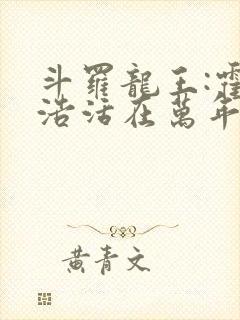 斗羅龍王:霍
浩活在萬年
黃青文